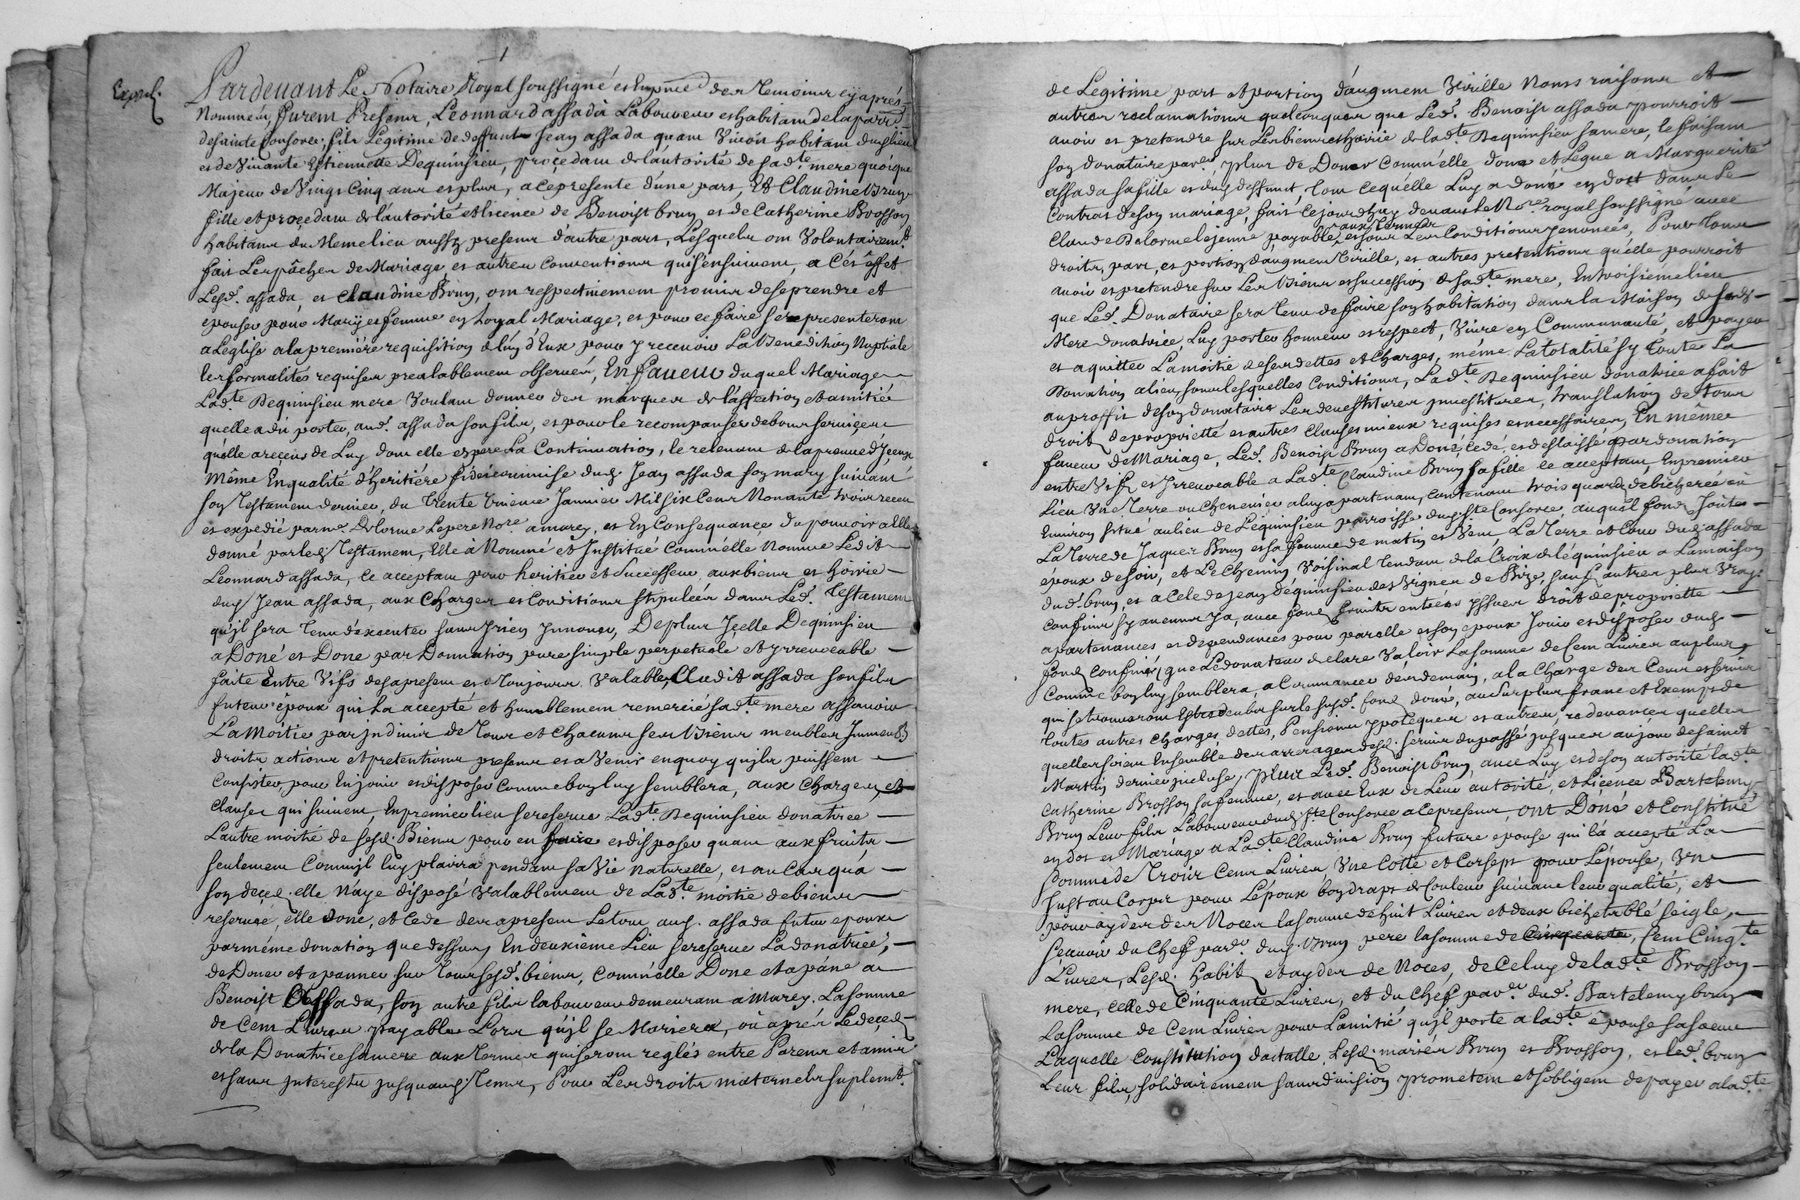 1
Expéd.
Pardevant Le Notaire Royal soussigné et En pnce des temoins cy après
Nommes, furent Presens Leonnard assada Laboureur et habitant de la parr.
de sainte Consorce, fils Legitime de deffunt Jean assada quand vivoit habitant dud lieu
et de Vivante Estiennette Dequinsieu, procedant de l'autorité de sad.te mere quoique
Majeur de Vingt Cinq ans et plus, a ce presente d'une part, Et Claudine Brun
fille et proçedant de l'autorité et licence de Benoist brun et de Catherine Brosson
habitans du Meme lieu aussy presens d'autre part, Lesquels ont Volontairem.t
fait Les pâches de Mariage, et autres Conventions qui s'ensuivent, a Cés éffet
Lesd. assada, et Claudine Brun, ont respectivement promis de se prendre et
epouser pour Mary et femme en Loyal Mariage, et pour ce faire se presenteront
a L'eglise a la première requisition de l'un d'Eux pour y recevoir La Benediction Nuptiale
les formalités requises prealablement observées, En faveur duquel Mariage
Lad.te Dequinsieu mere Voulant donner des marques de l'affection et amitié
quelle a du porter, aud. assada son fils, et pour le recompenser des bons services
qu'elle a reçeus de Luy dont elle espere La Continuation, le relevant de la preuve d'Iceux
Même En qualité d'heritière fideicommise dud Jean assada son mary suivant
son Testament dernier, du trente unieme Janvier Mil six Cens Nonante trois receu
et expedié par me delorme Lepere No.re a marcy, et En Consequance du pouvoir a Elle
donné par led Testament, Elle à Nommé et Institué Comm'elle Nomme Ledit
Leonnard assada, Ce acceptant pour heritier et Successeur aux biens et hoirie
dud Jean assada, aux Charges et Conditions stipulées dans Led. Testament
qu'il sera tenu d'executer sans y rien Innover, De plus Jcelle Dequinsieu
a Doné et Done par Donnation pure simple perpetuele et Irrevocable
faite Entre Vifs des a present et a toujours Valable, Audit assada son fils
futeur epoux qui L'a accepté et humblement remercié sad.te mere assavoir
La Moitié par jndivis de tous et Chacuns ses Biens meubles Immeub
droits actions et pretentions presens et a Venir en quoy qu'ils puissent
Consister, pour En jouir et disposer Comme bon luy semblera, aux Charges, et
Clauses qui suivent, En premier lieu se reserve Lad.te Dequinsieu donatrice
L'autre moitié de sesd Biens pour en faire et disposer quant aux fruits
seulement Comm'il luy plaira pendant sa Vie Naturelle, et au Cas qu'a
son deçed elle N'aye disposé valablement de Lad.te moitié de biens
reservée, elle done, et Cede des a present Letout aud. assada futur epoux
par même donation que dessus, En deuxième Lieu se reserve La donatrice,
de Doner et apanner sur tous sesd. biens, Comm'elle Done et apâne a
Benoist Assada, son autre fils laboureur demeurant a Marcy, La somme
de Cent Livres payables Lors qu'il se Mariera, ou aprés Le deçed
de la Donatrice sa mere aux termes qui seront reglés entre Parens et amis
et sans Interests jusqu'aud tems, Pour Les droits maternels suplem.t
de Legitime part et portion d'augment Virille Noms raisons Et
autres reclamations quelconques que Led. Benoist assada pourroit
avoir et pretendre sur Les biens et hoirie de lad.te Dequinsieu sa mere, le faisant
son donataire par.er Plus de Doner Comm'elle done et Legue a Marguerite
assada sa fille et dud deffunct, tout ce qu'elle Luy a doné en dott dans Le
Contrat de son mariage, fait Cejourdhuy devant le No.re royal soussigné avec
Claude Delorme Lejeune payable aux termes et sous Les Conditions y enoncées, Pour tous
droits, part, et portion d'augment Virille, et autres pretentions qu'elle pourroit
avoir et pretendre sur Les Biens et succession de sad.te mere, En troisieme lieu
que Led. Donataire sera tenu de faire son habitation dans la Maison de sad
Mere donatrice, Luy porter honneur et respect, Vivre en Communauté, et payer
et aquitter La moitié de ses dettes et Charges, même La totalité sy toute La
Donation a lieu, sous lesquelles Conditions, Lad.te Dequinsieu donatrice a fait
au proffit de son donataire Les devestitures jnvestitures, translation de tous
droit de proprietté et autres Clauses mieux requises et necessaires, En même
faveur de Mariage, Led. Benoist Brun a Doné, Cedé et deslaissé par donation
entre Vifs et Irrevocable a Lad.te Claudine Brun sa fille ce acceptant, En premier
Lieu Une Terre ou Cheneviere a luy apartenant, Contenant trois quards de bicherée ou
Environ situé au lieu de Lequinsieu parroisse dud Ste Consorce, auquel fond Joute
La terre de Jaques Brun et sa femme de matin et Vent La Terre et Cour dud assada
epoux de soir, et Le Chemin Voisinal tendant de la Croix de Lequinsieu a La maison
dud. brun, et a Cele de Jean Dequinsieu des Vignes de Bize, sauf autres plus Vrays
Confins sy aucuns y a, avec fond fruits entrées Issues droit de proprieté
apartenances et dependances pour par elle et son epoux Jouir et disposer dud
fond Confiné, que Le donateur declare Valoir La somme de Cent Livres au plus,
Comme bon luy semblera, a Commancer des demain, a la charge des Cens et servis
qui se trouveront Estre deubs sur le susd. fond doné, au Surplus franc et Exempt de
toutes autres Charges dettes, Pensions ypoteques et autres, redevances quelles
quelles soient Ensemble des arrerages desd. servis du passé jusques au jour de saint
Martin dernier incluse, plus Led. Benoist brun, avec Luy et de son autorité lad.te
Catherine Brosson sa femme, et avec Eux de Leur autorité, et Licence Bartelemy
Brun Leur fils Laboureur dud Ste Consorce a ce present, ont Doné et Constitué
en dot et Mariage a Lad.te Claudine Brun future epouse qui l'a accepté La
Somme de Trois Cens Livres, Une Cotte et Corsept pour L'épouse, Un
Just au Corps pour L'epoux bon drapt de Couleur suivant leur qualité, et
pour ayder des Noces la somme de huit Livres et deux bichets blé seigle,
sçavoir du Chef par.er dud. Brun pere la somme de Cinquante, Cent Cinq.te
Livres, Lesd. habit et ayder de Noces, de Celuy de lad.te Brosson
mere, Celle de Cinquante Livres, et du Chef par.er dud. Bartelemy brun
La somme de Cent Livres pour L'amitié qu'il porte a lad.te epouse sa soeur
Laquelle Constitution dotalle Lesd. mariés Brun et Brosson, et led. brun
Leur fils, solidairement sans division promettent et s'obligent de payer a lad.te